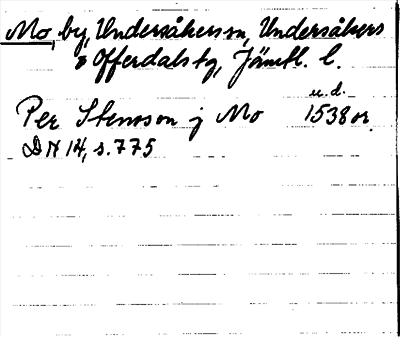 Mo, by, Undersåkers sn, Undersåkers
o Offerdals tg, Jämtl. l.
u.d.
Per Stensson j Mo 1538 or.
DN 14, s. 775